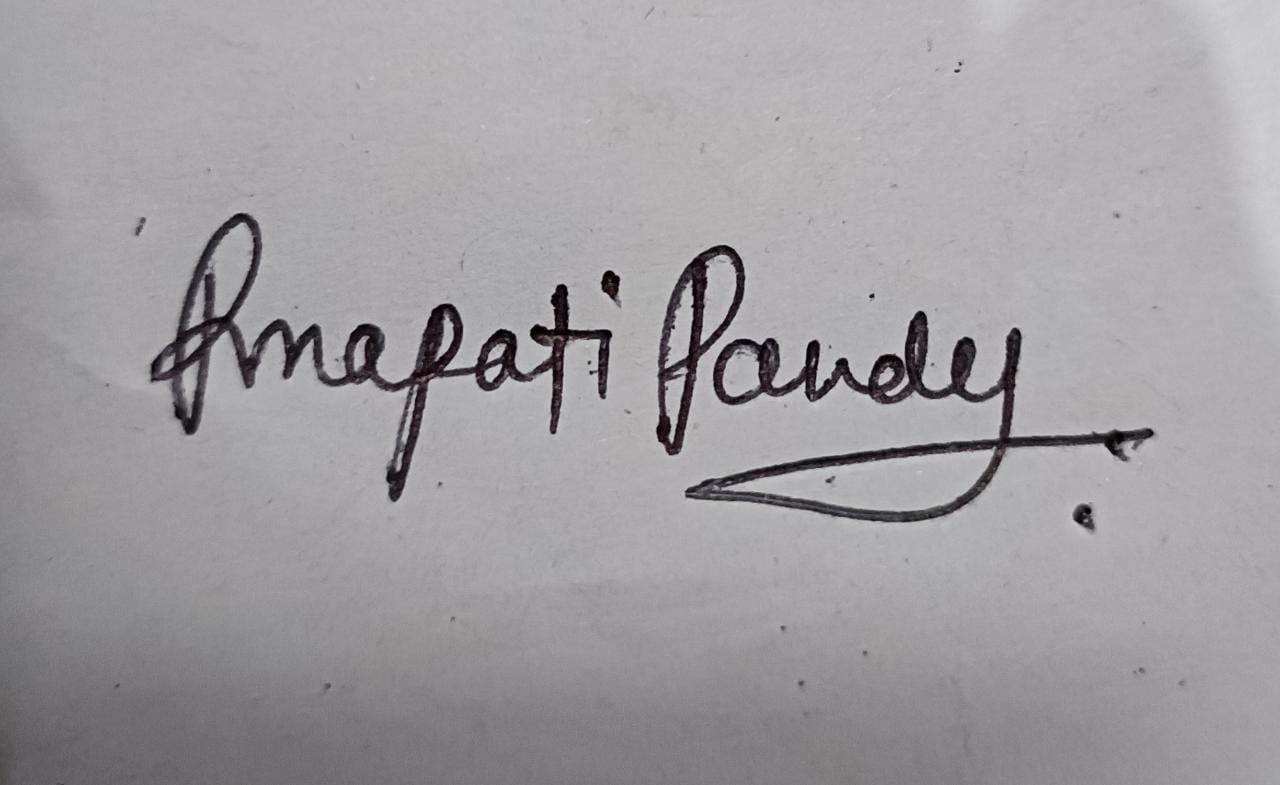 Rmapati Pandey